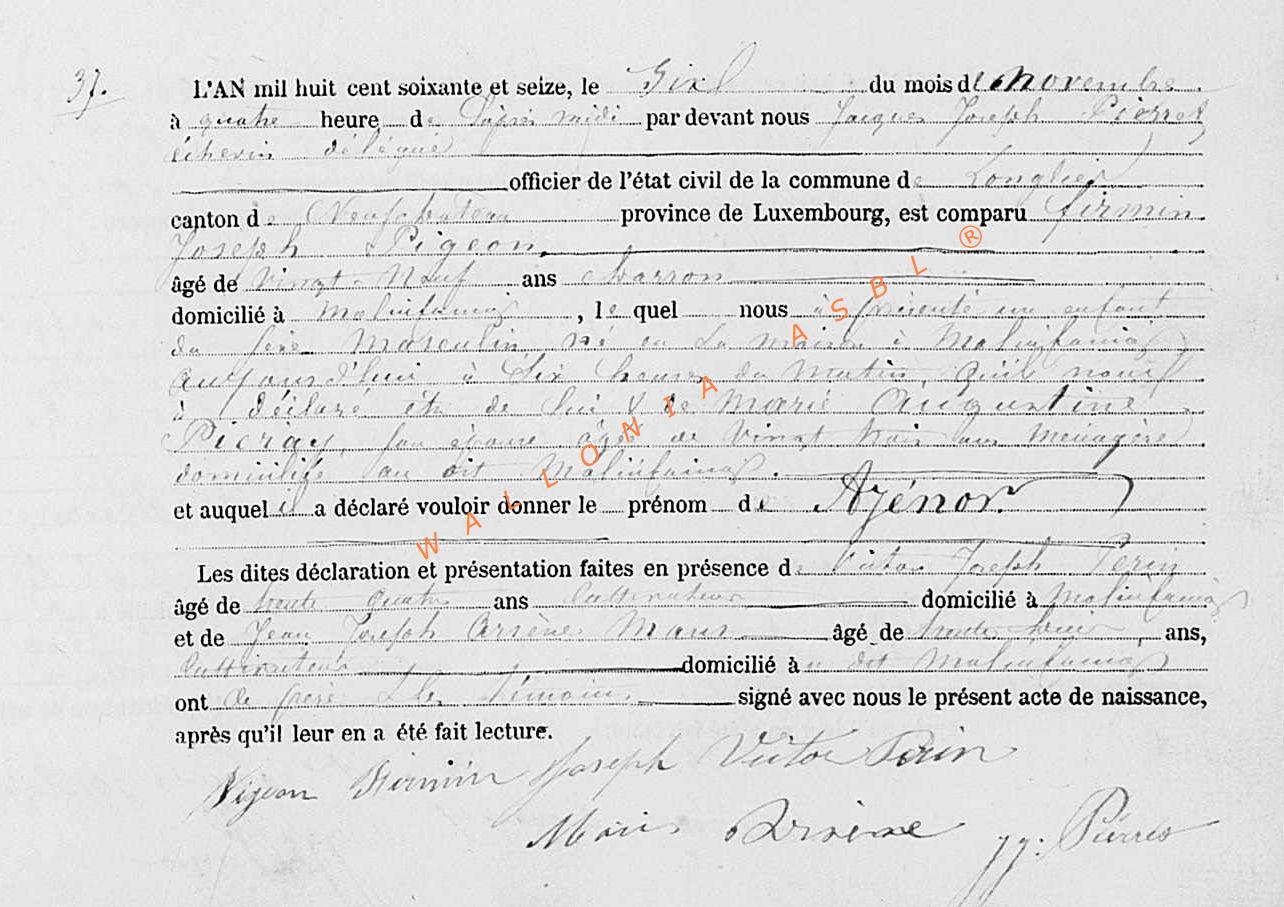 37.
L'AN mil huit cent soixante et seize, le Six du mois de Novembre.
à quatre heure de l'après midi par devant nous Jacques Joseph Pierret
échevin délégué
officier de l'état civil de la commune de Longlier
canton de Neufchateau province de Luxembourg, est comparu firmin
Joseph Pigeon,
âgé de Vingt-Neuf ans charron
domicilié à Molinfaing, le quel nous à présenté un enfant
du sexe Masculin né en sa maison à Molinfaing
aujourd'hui à Six heures du Matin, quil nous
à déclaré être de lui & de Marie Augustine
son épouse âgée de Vingt trois ans Ménagère
domiciliée au dit Molinfaing.
et auquel il a déclaré vouloir donner le prénom de Azénor.
Les dites déclaration et présentation faites en présence de Victor Joseph Perin
âgé de trente quatre ans Cultivateur domicilié à Molinfaing
et de Jean Joseph Arsène Maus âgé de trente ans,
Cultivateur domicilié à u dit Molinfaing
ont le père & les témoins signé avec nous le présent acte de naissance,
après qu'il leur en a été fait lecture.
Pigeon Firmin Joseph Victor Perin
Maus Arsène JJ. Pierret
WALLONIA ASBL ®